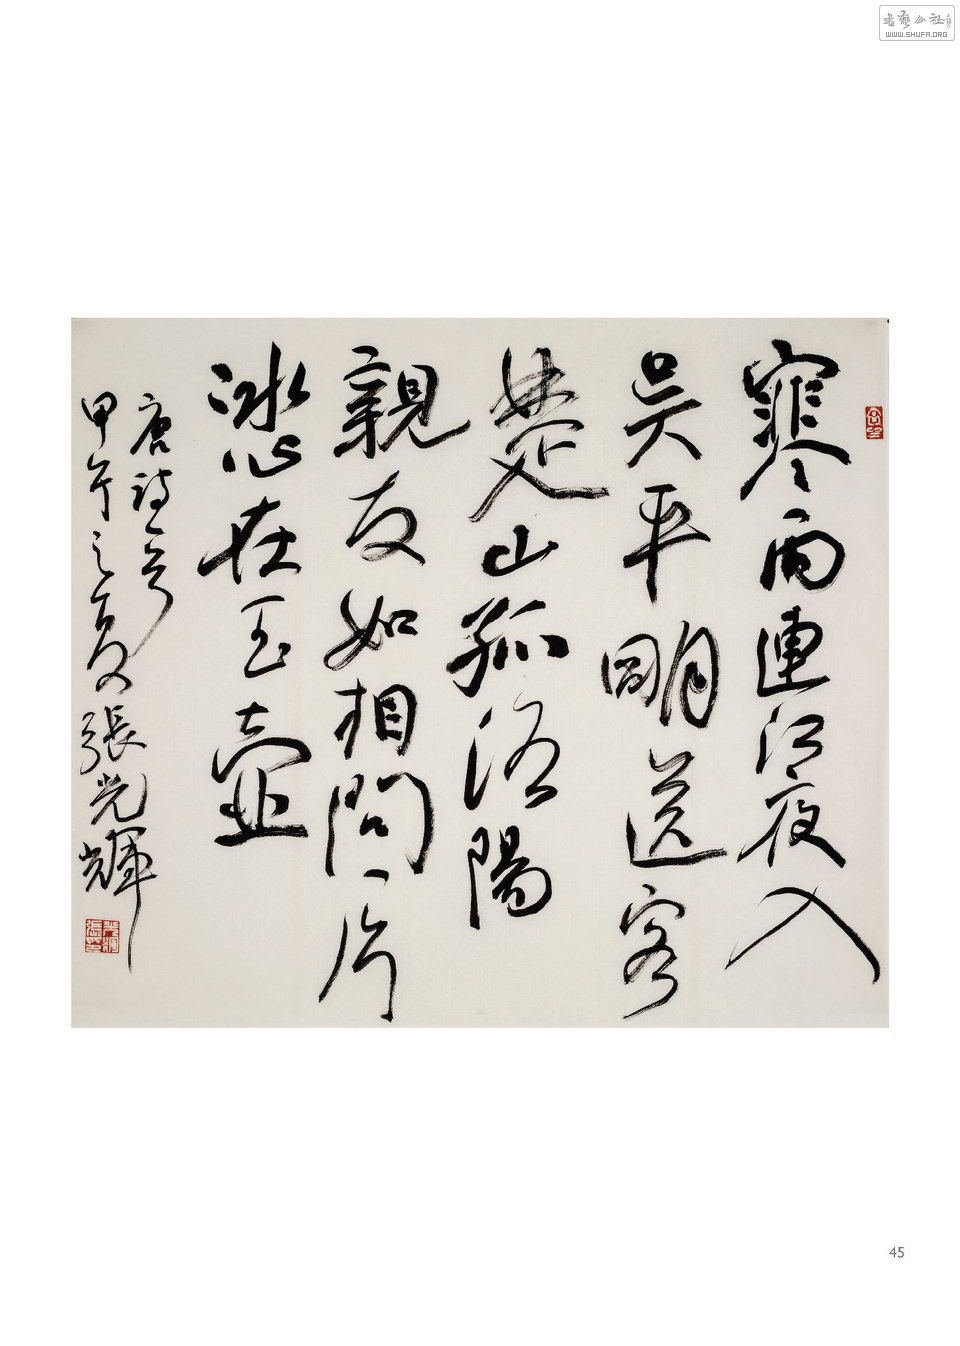 書藝公社
WWW.SHUFA.ORG
寒雨連江夜入
吴平明送客
楚山孤洛陽
親友如相問一片
冰心在玉壺
唐詩一首
甲午之夏張光輝
45